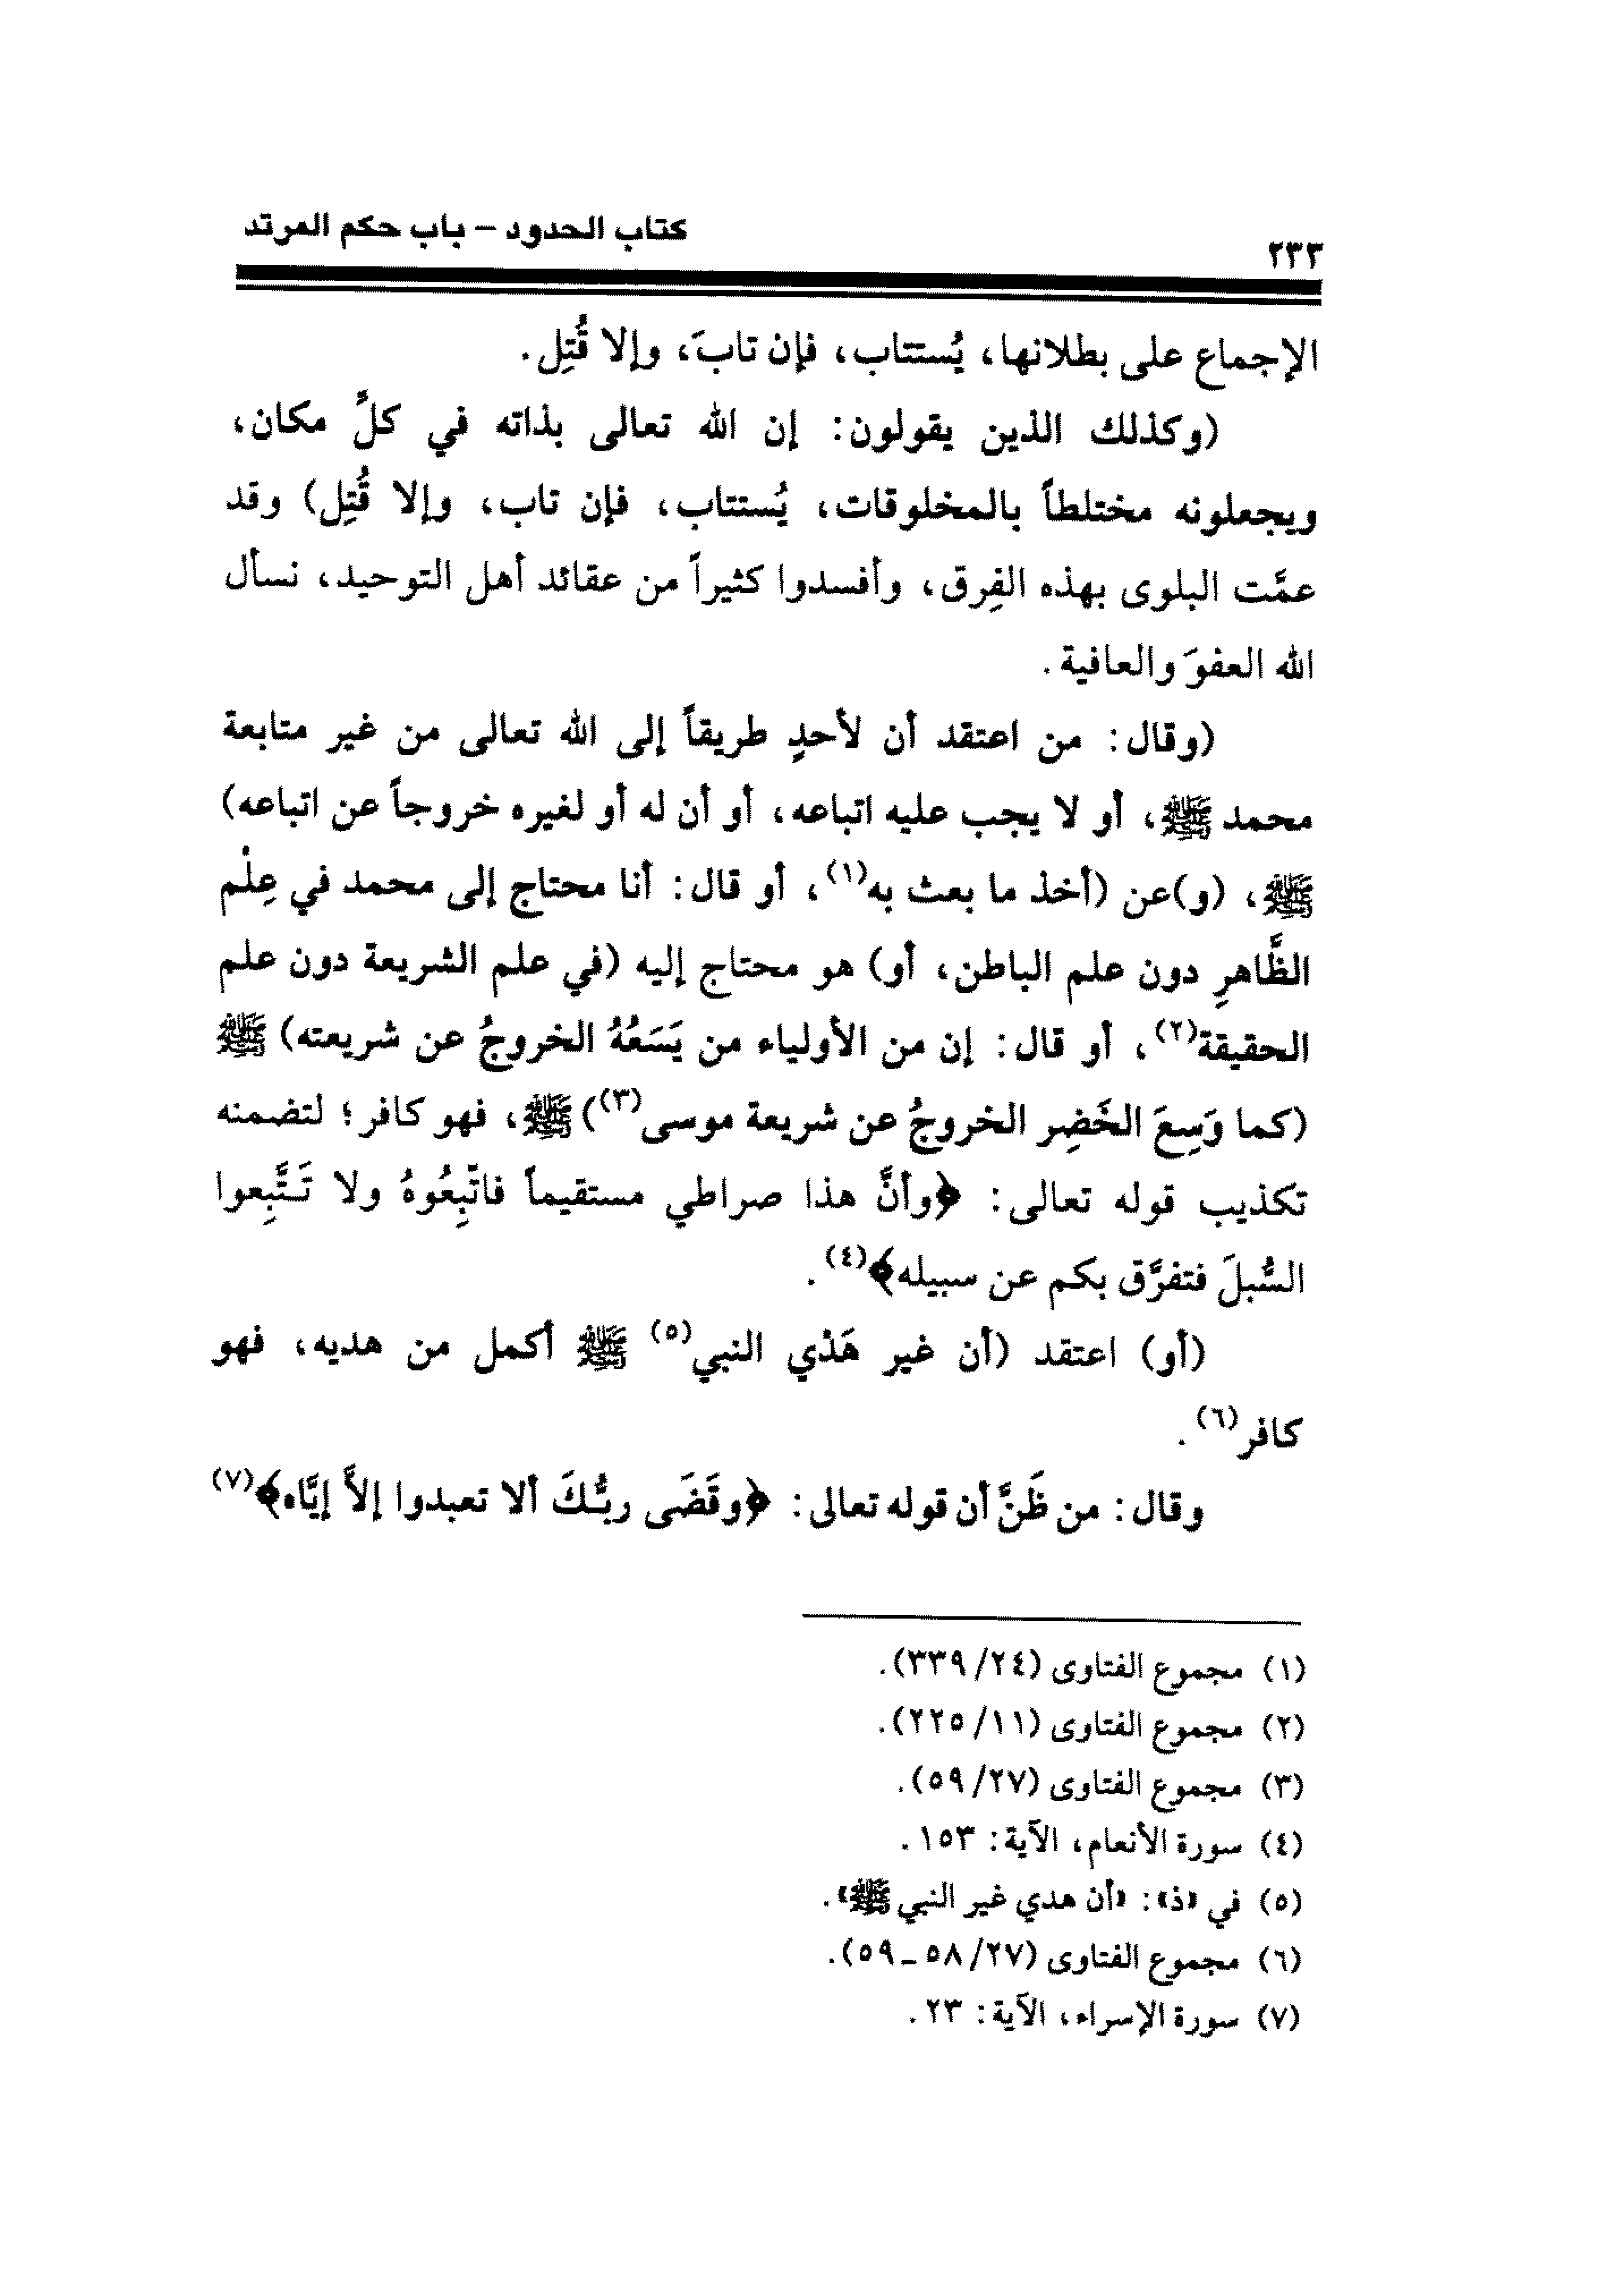 ٢٣٣
كتاب الحدود – باب حكم المرتد
الإجماع على بطلانها، يُستتاب، فإن تابَ، وإلا قُتِل.
(وكذلك الذين يقولون: إن الله تعالى بذاته في كلِّ مكان،
ويجعلونه مختلطاً بالمخلوقات، يُستتاب، فإن تاب، وإلا قُتِل) وقد
عمَّت البلوى بهذه الفِرق، وأفسدوا كثيراً من عقائد أهل التوحيد، نسأل
الله العفوَ والعافية.
(وقال: من اعتقد أن لأحدٍ طريقاً إلى الله تعالى من غير متابعة
محمد ﷺ، أو لا يجب عليه اتباعه، أو أن له أو لغيره خروجاً عن اتباعه)
ﷺ، (و)عن (أخذ ما بعث به(١)، أو قال: أنا محتاج إلى محمد في عِلْم
الظَّاهرِ دون علم الباطن، أو) هو محتاج إليه (في علم الشريعة دون علم
الحقيقة(٢)، أو قال: إن من الأولياء من يَسَعُهُ الخروجُ عن شريعته) ﷺ
(كما وَسِعَ الخَضِر الخروجُ عن شريعة موسى(٣)) ﷺ، فهو كافر؛ لتضمنه
تكذيب قوله تعالى: ﴿وأنَّ هذا صراطي مستقيماً فاتّبِعُوهُ ولا تَـتَّبِعوا
السُّبلَ فتفرَّق بكم عن سبيله﴾(٤).
(أو) اعتقد (أن غير هَدْي النبي(٥) ﷺ أكمل من هديه، فهو
كافر(٦).
وقال: من ظَنَّ أن قوله تعالى: ﴿وقَضَى ربُّـكَ ألا تعبدوا إلاَّ إيَّاه﴾(٧)
(١) مجموع الفتاوى (٢٤/ ٣٣٩).
(٢) مجموع الفتاوى (١١/ ٢٢٥).
(٣) مجموع الفتاوى (٢٧/ ٥٩).
(٤) سورة الأنعام، الآية: ١٥٣.
(٥) في «ذ»: «أن هدي غير النبي ﷺ».
(٦) مجموع الفتاوى (٢٧/ ٥٨ ـ ٥٩).
(٧) سورة الإسراء، الآية: ٢٣.